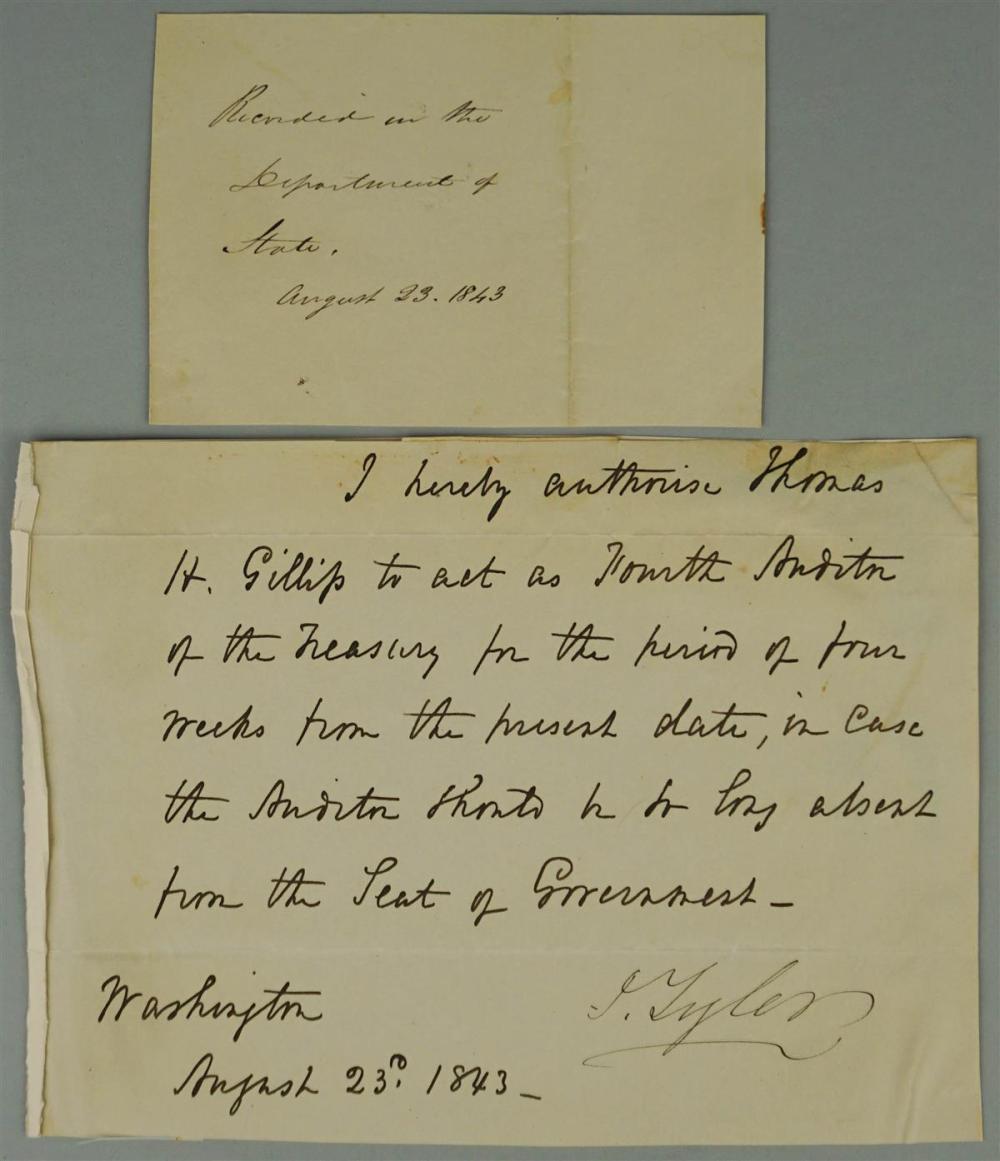 Recorded in the
Department of
State.
August 23. 1843
I hereby authorise Thomas
H. Gilliss to act as Fourth Auditor
of the Treasury for the period of four
weeks from the present date, in case
the Auditor should be so long absent
from the Seat of Government_
Washington
J. Tyler
August 23d. 1843_